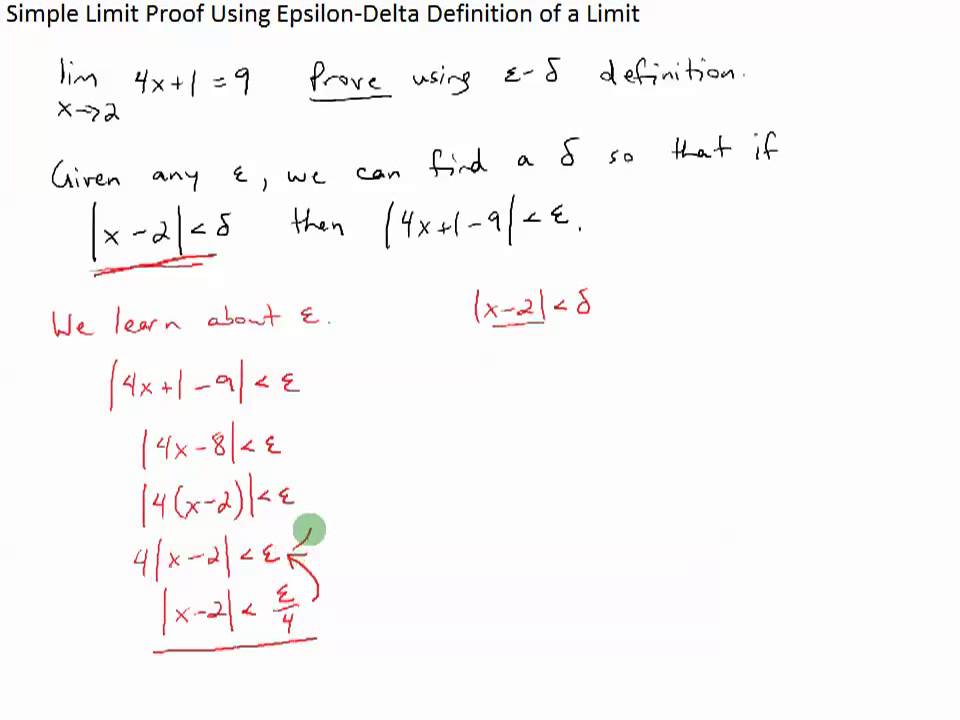 Simple Limit Proof Using Epsilon-Delta Definition of a Limit
lim 4x+1 = 9 Prove using ε-δ definition.
x→2
Given any ε, we can find a δ so that if
|x-2| < δ then |4x+1-9| < ε.
We learn about ε. |x-2| < δ
|4x+1-9| < ε
|4x-8| < ε
|4(x-2)| < ε
4|x-2| < ε
|x-2| < ε/4